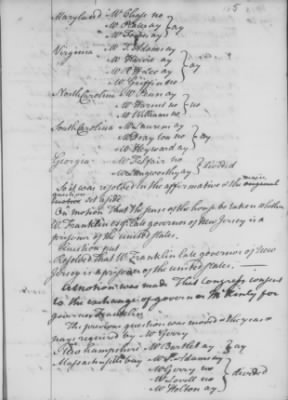 5
Maryland Mr Chase no
Mr Plater ay } ay
Mr Forbes ay
Virginia Mr T. Adams ay
Mr Harvie ay } ay
Mr R H Lee ay
Mr Griffin no
North Carolina Mr Penn ay
Mr Harnett no } no
Mr Williams no
South Carolina Mr Laurens ay
Mr Drayton no } ay
Mr Heyward ay
Georgia Mr Telfair no } divided
Mr Langworthy ay
So it was resolved in the affirmative & the
question set aside
On motion That the sense of the house be taken whether
W. Franklin late governor of New Jersey is a
prisoner of the united states.
Question put
Resolved That W. Franklin late governor of New
Jersey is a prisoner of the united states.
A motion was made That Congress consent
to the exchange of governor McKinly for
governor Franklin
The previous question was moved & the yeas &
nays required by Mr Gerry
New hampshire Mr Bartlet ay } ay
Massachusetts bay Mr S. Adams ay
Mr Gerry no } divided
Mr Lovell no
Mr Holten ay